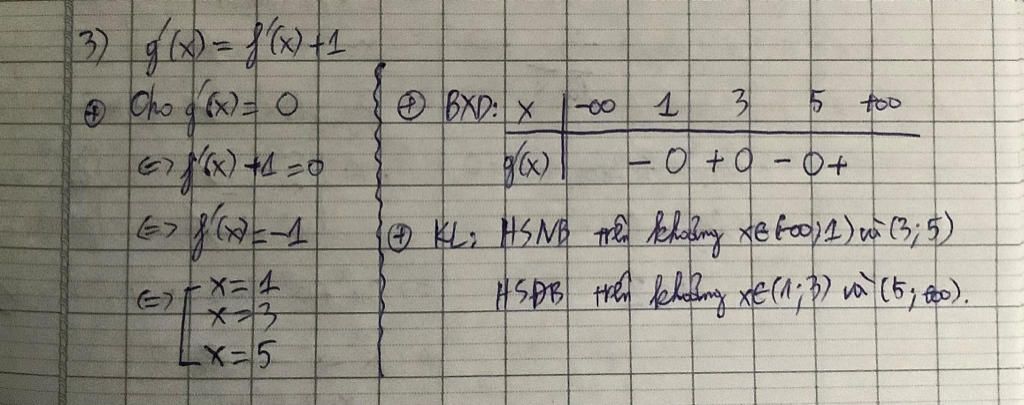 3) g'(x) = f'(x) + 1
⊕ Cho g'(x) = 0
<=> f'(x) + 1 = 0
<=> f'(x) = -1
<=> [ x = 1
x = 3
x = 5
⊕ BXD: x | -∞ 1 3 5 +∞
g'(x) | - 0 + 0 - 0 +
⊕ KL: HSNB trên khoảng x∈(-∞;1) và (3;5)
HSĐB trên khoảng x∈(1;3) và (5;+∞).